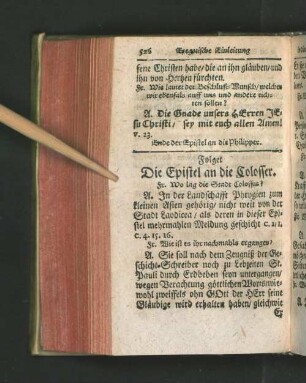 526 Bregnische Einleitung
sene Christen habe/ die an ihn gläuben/ und
ihn von Hertzen fürchten.
Fr. Wie lautet der Beschluß-Wunsch/ welchen
wir ebenfals auff uns und andere richten
sollen?
A. Die Gnade unsers HErren JEsu
Christi/ sey mit euch allen Amen!
v. 23.
Ende der Epistel an die Philipper.
Folget
Die Epistel an die Colosser.
Fr. Wo lag die Stadt Colossus?
A. In der Landschafft Phrygien zum
kleinen Asien gehörig/ nicht weit von der
Stadt Laodicea/ als deren in dieser Epistel
mehrmahlen Meldung geschicht c. 2/1.
c. 4. 15. 16.
Fr. Wie ist es ihr nachmahls ergangen?
A. Sie soll nach dem Zeugniß der Geschicht-Schreiber
noch zu Lebzeiten St.
Pauli durch Erdbeben seyn untergangen/
wegen Verachtung göttlichen Worts/ wiewahl
zweiffels ohn GOtt der HErr seine
Gläubige wird erhalten haben/ gleichwie
Er